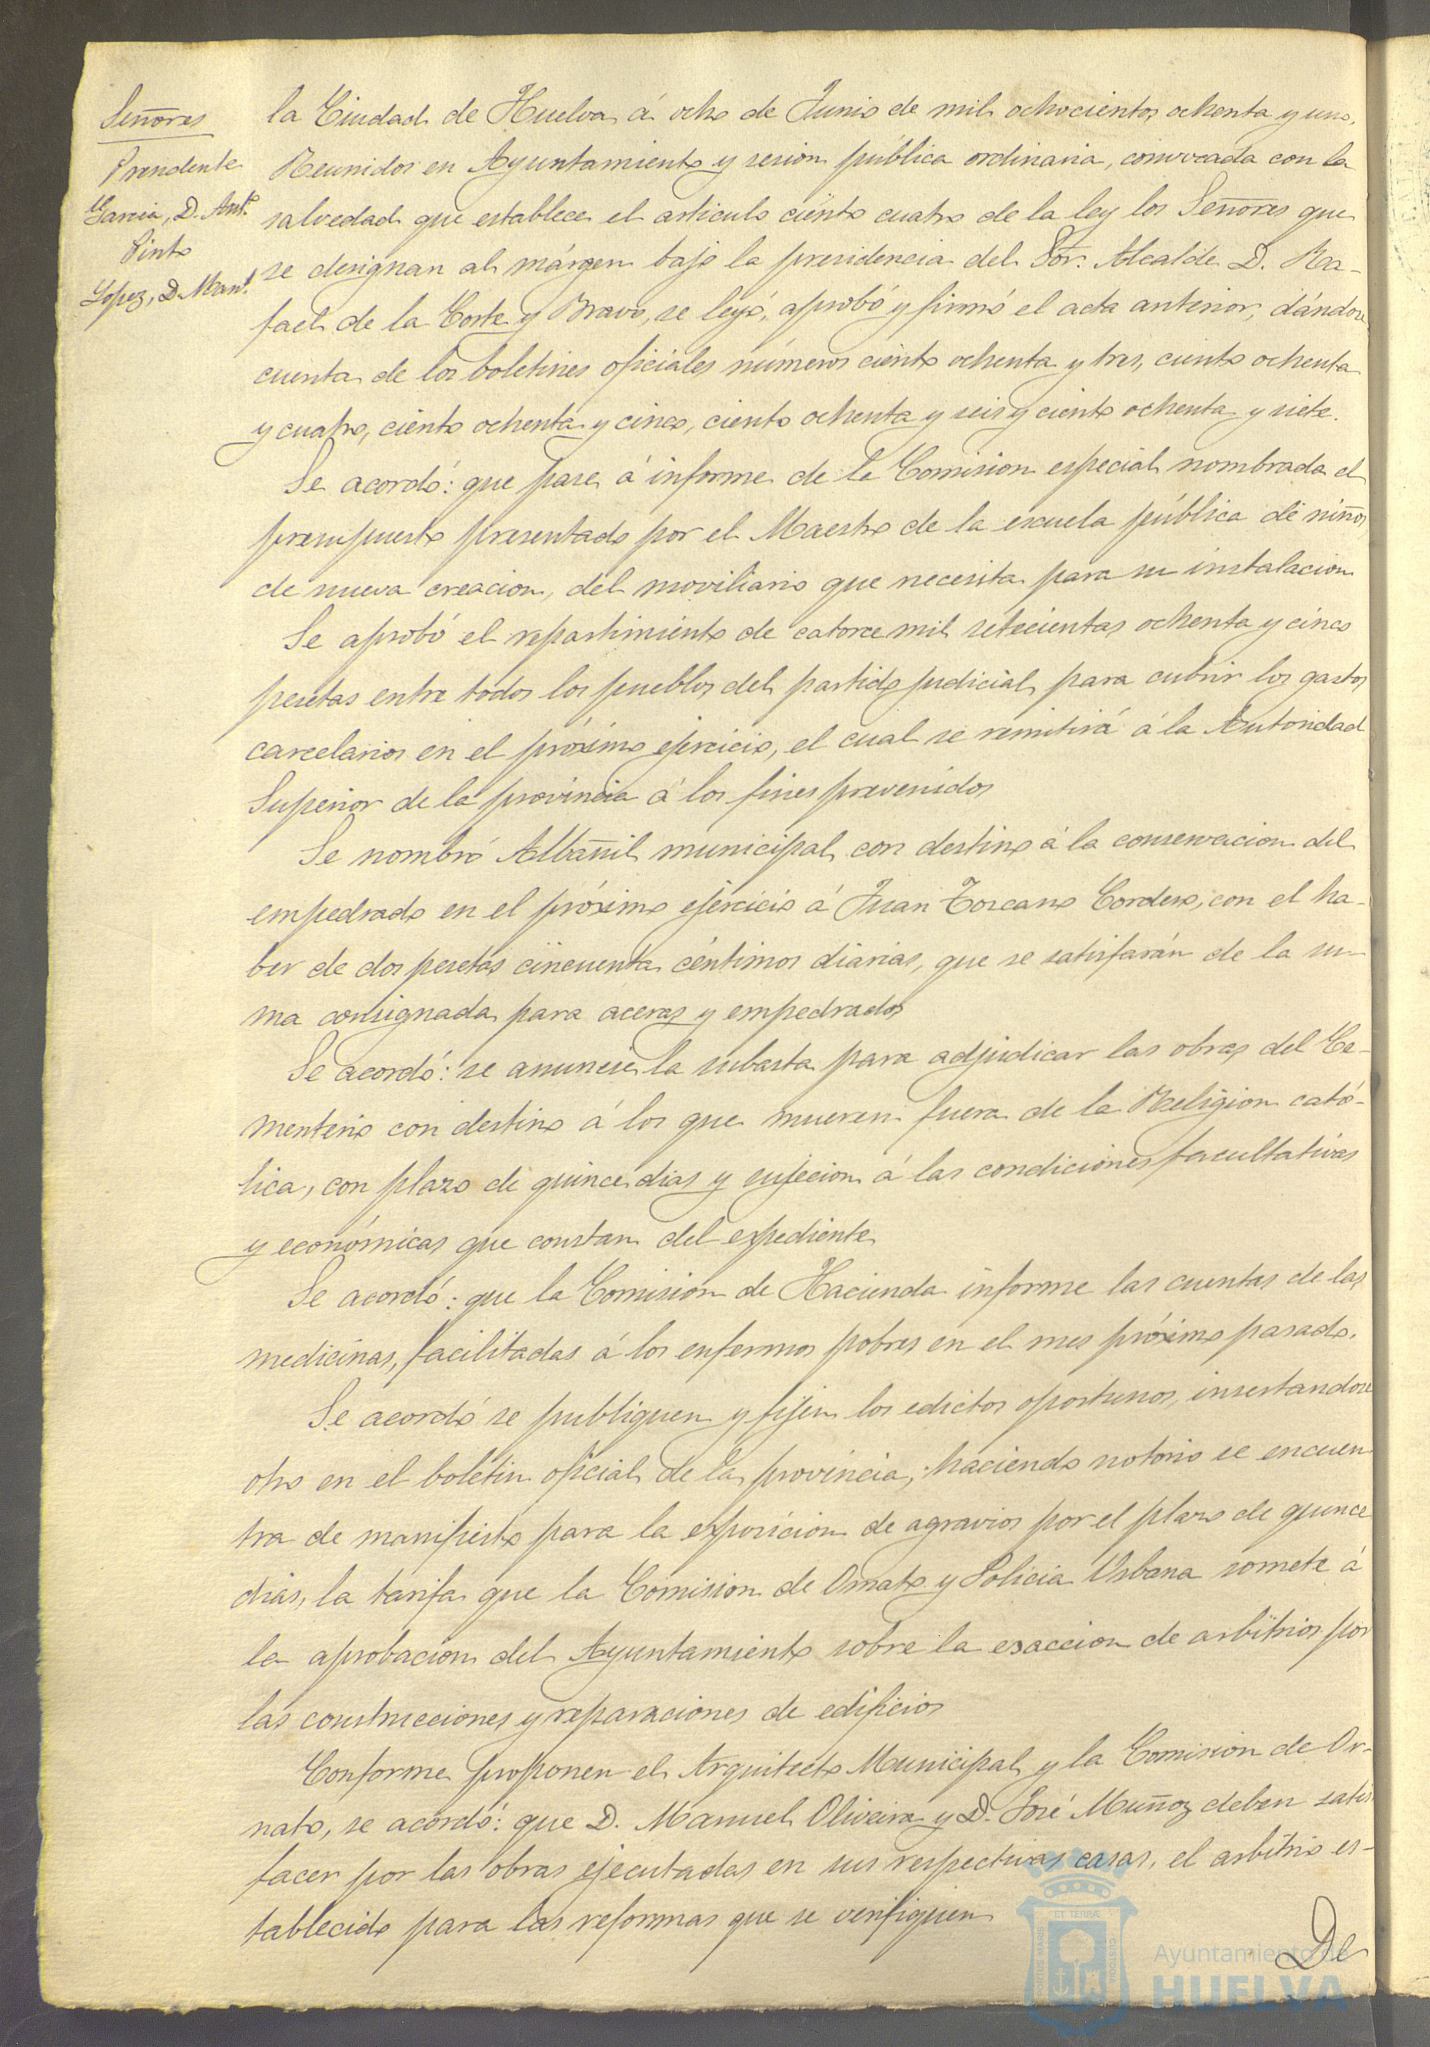 Señores
Presidente
Garcia, D. Antº
Pinto
Lopez, D. Manl.
la Ciudad de Huelva á ocho de Junio de mil ochocientos ochenta y uno.
Reunidos en Ayuntamiento y sesion pública ordinaria, convocada con la
salvedad que establece el articulo ciento cuatro de la ley los Señores que
se designan al márgen bajo la presidencia del Sor. Alcalde D. Ra-
fael de la Corte y Bravo, se leyó, aprobó y firmó el acta anterior, dándose
cuenta de los boletines oficiales números ciento ochenta y tres, ciento ochenta
y cuatro, ciento ochenta y cinco, ciento ochenta y seis y ciento ochenta y siete.
Se acordó: que pase á informe de la Comision especial nombrada el
presupuesto presentado por el Maestro de la escuela pública de niños
de nueva creacion, del moviliario que necesita para su instalacion
Se aprobó el repartimiento de catorce mil setecientas ochenta y cinco
pesetas entre todos los pueblos del partido judicial para cubrir los gastos
carcelarios en el próximo ejercicio, el cual se remitirá á la Autoridad
Superior de la provincia á los fines prevenidos
Se nombró Albañil municipal con destino á la conservacion del
empedrado en el próximo ejercicio á Juan Toscano Cordero, con el ha-
ber de dos pesetas cincuenta céntimos diarias, que se satisfarán de la su-
ma consignada para aceras y empedrados
Se acordó: se anuncie la subasta para adjudicar las obras del Ce-
menterio con destino á los que mueren fuera de la Religion cató-
lica, con plazo de quince dias y sujecion á las condiciones facultativas
y económicas que constan del expediente
Se acordó: que la Comision de Hacienda informe las cuentas de las
medicinas, facilitadas á los enfermos pobres en el mes próximo pasado.
Se acordó se publiquen y fijen los edictos oportunos, insertandose
otro en el boletin oficial de la provincia, haciendo notorio se encuen
tra de manifiesto para la exposicion de agravios por el plazo de quince
dias, la tarifa que la Comision de Ornato y Policia Urbana somete á
la aprobacion del Ayuntamiento sobre la exaccion de arbitrios por
las construcciones y reparaciones de edificios
Conforme proponen el Arquitecto Municipal y la Comision de Or-
nato, se acordó: que D. Manuel Oliveira y D. José Muñoz deben satis
facer por las obras ejecutadas en sus respectivas casas, el arbitrio es-
tablecido para las reformas que se verifiquen
De
Ayuntamiento de
HUELVA